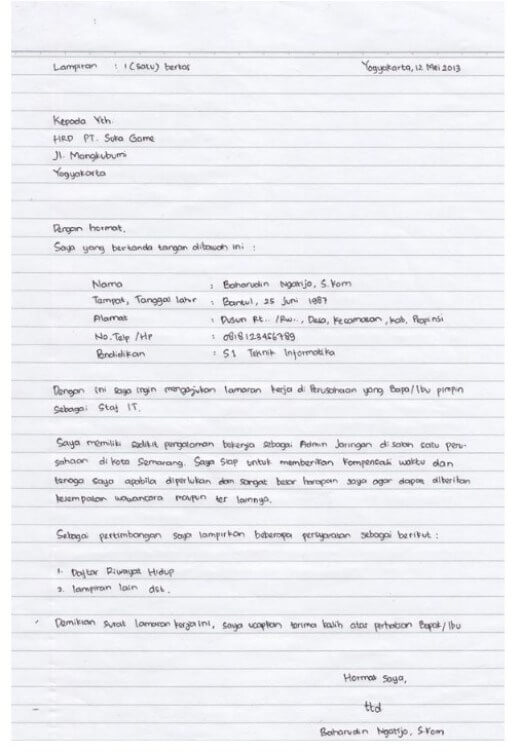 Lampiran : 1 (satu) berkas Yogyakarta, 12 Mei 2013
Kepada Yth
HRD PT. Suka Game
Jl. Mangkubumi
Yogyakarta
Dengan hormat,
Saya yang bertanda tangan dibawah ini :
Nama : Baharudin Ngatijo, S.Kom
Tempat, Tanggal lahir : Bantul, 25 Juni 1987
Alamat : Dusun Rt.. /Rw.., Desa, Kecamatan, Kab, Propinsi
No. Telp /Hp : 0818123456789
Pendidikan : S1 Teknik Informatika
Dengan ini saya ingin mengajukan lamaran kerja di Perusahaan yang Bapa/Ibu pimpin
Sebagai Staf IT.
Saya memiliki sedikit pengalaman bekerja sebagai Admin Jaringan di salah satu peru-
sahaan di kota Semarang. Saya Siap untuk memberikan kompensasi waktu dan
tenaga saya apabila diperlukan dan sangat besar harapan saya agar dapat diberikan
kesempatan wawancara maupun tes lainnya.
Sebagai pertimbangan saya lampirkan beberapa persyaratan sebagai berikut :
1. Daftar Riwayat Hidup
2. lampiran lain dst.
Demikian surat lamaran kerja ini, saya ucapkan terima kasih atas perhatian Bapak/Ibu
Hormat Saya,
ttd
Baharudin Ngatijo, S.Kom